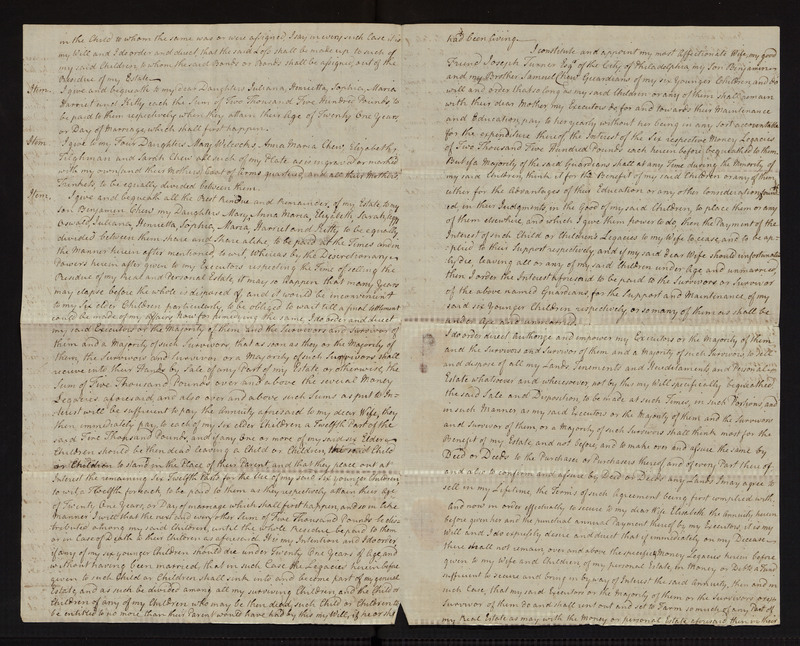 in the Child to whom the same was or were assigned I say in every such Case it is
my Will and I do order and direct that the said Loss shall be made up to such of
my said Children to whom the said Bonds or Bonds shall be assigned, out of the
Residue of my Estate.
Item. I give and bequeath to my dear Daughters Juliana, Henrietta, Sophia, Maria
Harriet and Kitty each the Sum of Two Thousand Five Hundred Pounds to
be paid to them respectively when they attain their Age of Twenty One Years,
or Day of Marriage, which shall first happen.
Item I give to my Four Daughters Mary Wilcocks, Anna Maria Chew, Elizabeth
Tilghman and Sarah Chew all such of my Plate as is engraved or marked
with my own (and their Mothers) Coat of Arms quartered and all their Mothers
Trinkets, to be equally divided between them.
Item. I give and bequeath all the Rest Residue and Remainder, of my Estate, to my
Son Benjamin Chew my Daughters Mary, Anna Maria, Elizabeth, Sarah, Peggy
Oswald, Juliana, Henrietta, Sophia, Maria, Harriet and Kitty, to be equally
divided between them share and share alike, to be paid at the Times and in
the Manner herein after mentioned, to wit, Whereas by the Discretionary
Powers herein after given to my Executors respecting the Time of selling the
Residue of my Real and Personal Estate, it may so happen that many Years
may elapse before the whole is disposed of, and it would be inconvenient
to my Six elder Children particularly to be obliged to wait till a final Settlement
could be made of my Affairs. Now for remedying the same, I do order and direct
my said Executors or the Majority of them and the Survivors and Survivor of
them and a Majority of such Survivors that as soon as they or the Majority of
them, the Survivors and Survivor or a Majority of such Survivors shall
receive into their Hands by Sale of any Part of my Estate or otherwise, the
Sum of Five Thousand Pounds over and above the several Money
Legacies aforesaid, and also over and above such Sums as put to In-
terest will be sufficient to pay the Annuity aforesaid to my dear Wife, they
then immediately pay to each of my Six elder Children a Twelfth Part of the
said Five Thousand Pounds, and if any one or more of my said six Elder
Children should be then dead leaving a Child or Children, the said Child
or Children to stand in the Place of their Parent, and that they place out at
Interest the remaining Six Twelfth Parts for the Use of my said Six younger Children
to wit a Twelfth for each, to be paid to them as they respectively attain their Age
of Twenty One Years, or Day of marriage which shall first happen, and so in like
Manner I will that the next and every other Sum of Five Thousand Pounds be dis-
tributed among my said Children, until the whole Residue be paid to them
or in Case of Death to their Children as aforesaid. It is my Intention and I do order
if any of my six younger Children should die under Twenty One Years of Age and
without having been married, that in such Case the Legacies herein before
given to such Child or Children shall sink into and become part of my general
Estate, and as such be divided among all my surviving Children and the Child or
Children of any of my Children who may be then dead, such Child or Children to
be entitled to no more than their Parent would have had by this my Will, if he or she
had been living.
I constitute and appoint my most affectionate Wife, my good
Friend Joseph Turner Esqr of the City of Philadelphia, my Son Benjamin
and my Brother Samuel Chew Guardians of my six younger Children, and do
will and order that so long as my said Children or any of them shall remain
with their dear Mother, my Executors do for and towards their Maintenance
and Education pay to her yearly without her being in any sort accountable
for the expenditure thereof the Interest of the Six respective Money Legacies
of Two Thousand Five Hundred Pounds each herein before bequeathed to them,
But if a Majority of the said Guardians shall at any Time during the Minority of
my said Children, think it for the Benefit of my said Children or any of them
either for the Advantages of their Education or any other Consideration, found-
ed, in their Judgments in the Good of my said Children, to place them or any
of them elsewhere, and which I give them power to do, then the Payment of the
Interest of such Child or Children's Legacies to my Wife to cease, and to be ap-
plied to their Support respectively, and if my said dear Wife should unfortunate-
ly die, leaving all or any of my said Children under Age and unmarried,
then I order the Interest aforesaid to be paid to the Survivors or Survivor
of the above named Guardians for the Support and Maintenance of my
said six Younger Children respectively, or so many of them as shall be
under Age and unmarried.
I do order direct authorize and empower my Executors or the Majority of them
and the Survivors and Survivor of them and a Majority of such Survivors, to sell
and dispose of all my Lands Tenements and Hereditaments and Personal
Estate whatsoever and wheresoever not by this my Will specifically bequeathed
the said Sale and Disposition to be made at such Times, in such Portions, and
in such Manner as my said Executors or the Majority of them and the Survivors
and Survivor of them, or a Majority of such Survivors shall think most for the
Benefit of my Estate and not before, and to make over and assure the same by
Deed or Deeds to the Purchaser or Purchasers thereof and of every Part thereof,
and also to confirm and assure by Deed or Deeds any Lands I may agree to
sell in my Lifetime, the Terms of such Agreement being first complied with,
and now in order effectually to secure to my dear Wife Elizabeth the Annuity herein
before given her and the punctual annual Payment thereof by my Executors, it is my
Will and I do expressly desire and direct that if immediately on my Decease
there shall not remain over and above the specifick Money Legacies herein before
given to my Wife and Children of my personal Estate in Money or Debts a Fund
sufficient to secure and bring in by way of Interest the said Annuity, then and in
such Case, that my said Executors or the Majority of them or the Survivors or
Survivor of them Do and shall rent out and set to Farm so much of any Part of
my Real Estate as may with the Money or personal Estate aforesaid